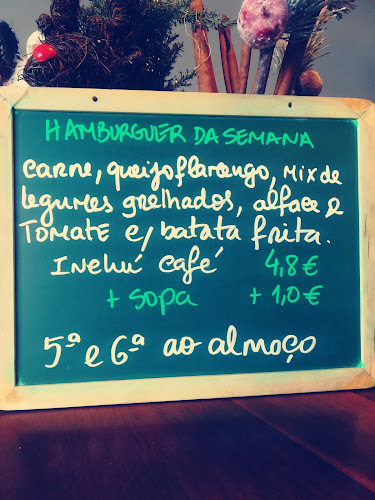 HAMBURGUER DA SEMANA
carne, queijo flamengo, mix de
legumes grelhados, alface e
TOMATE e/ batata frita.
Inclui café 4,8€
+ sopa + 1,0€
5ª e 6ª ao almoço